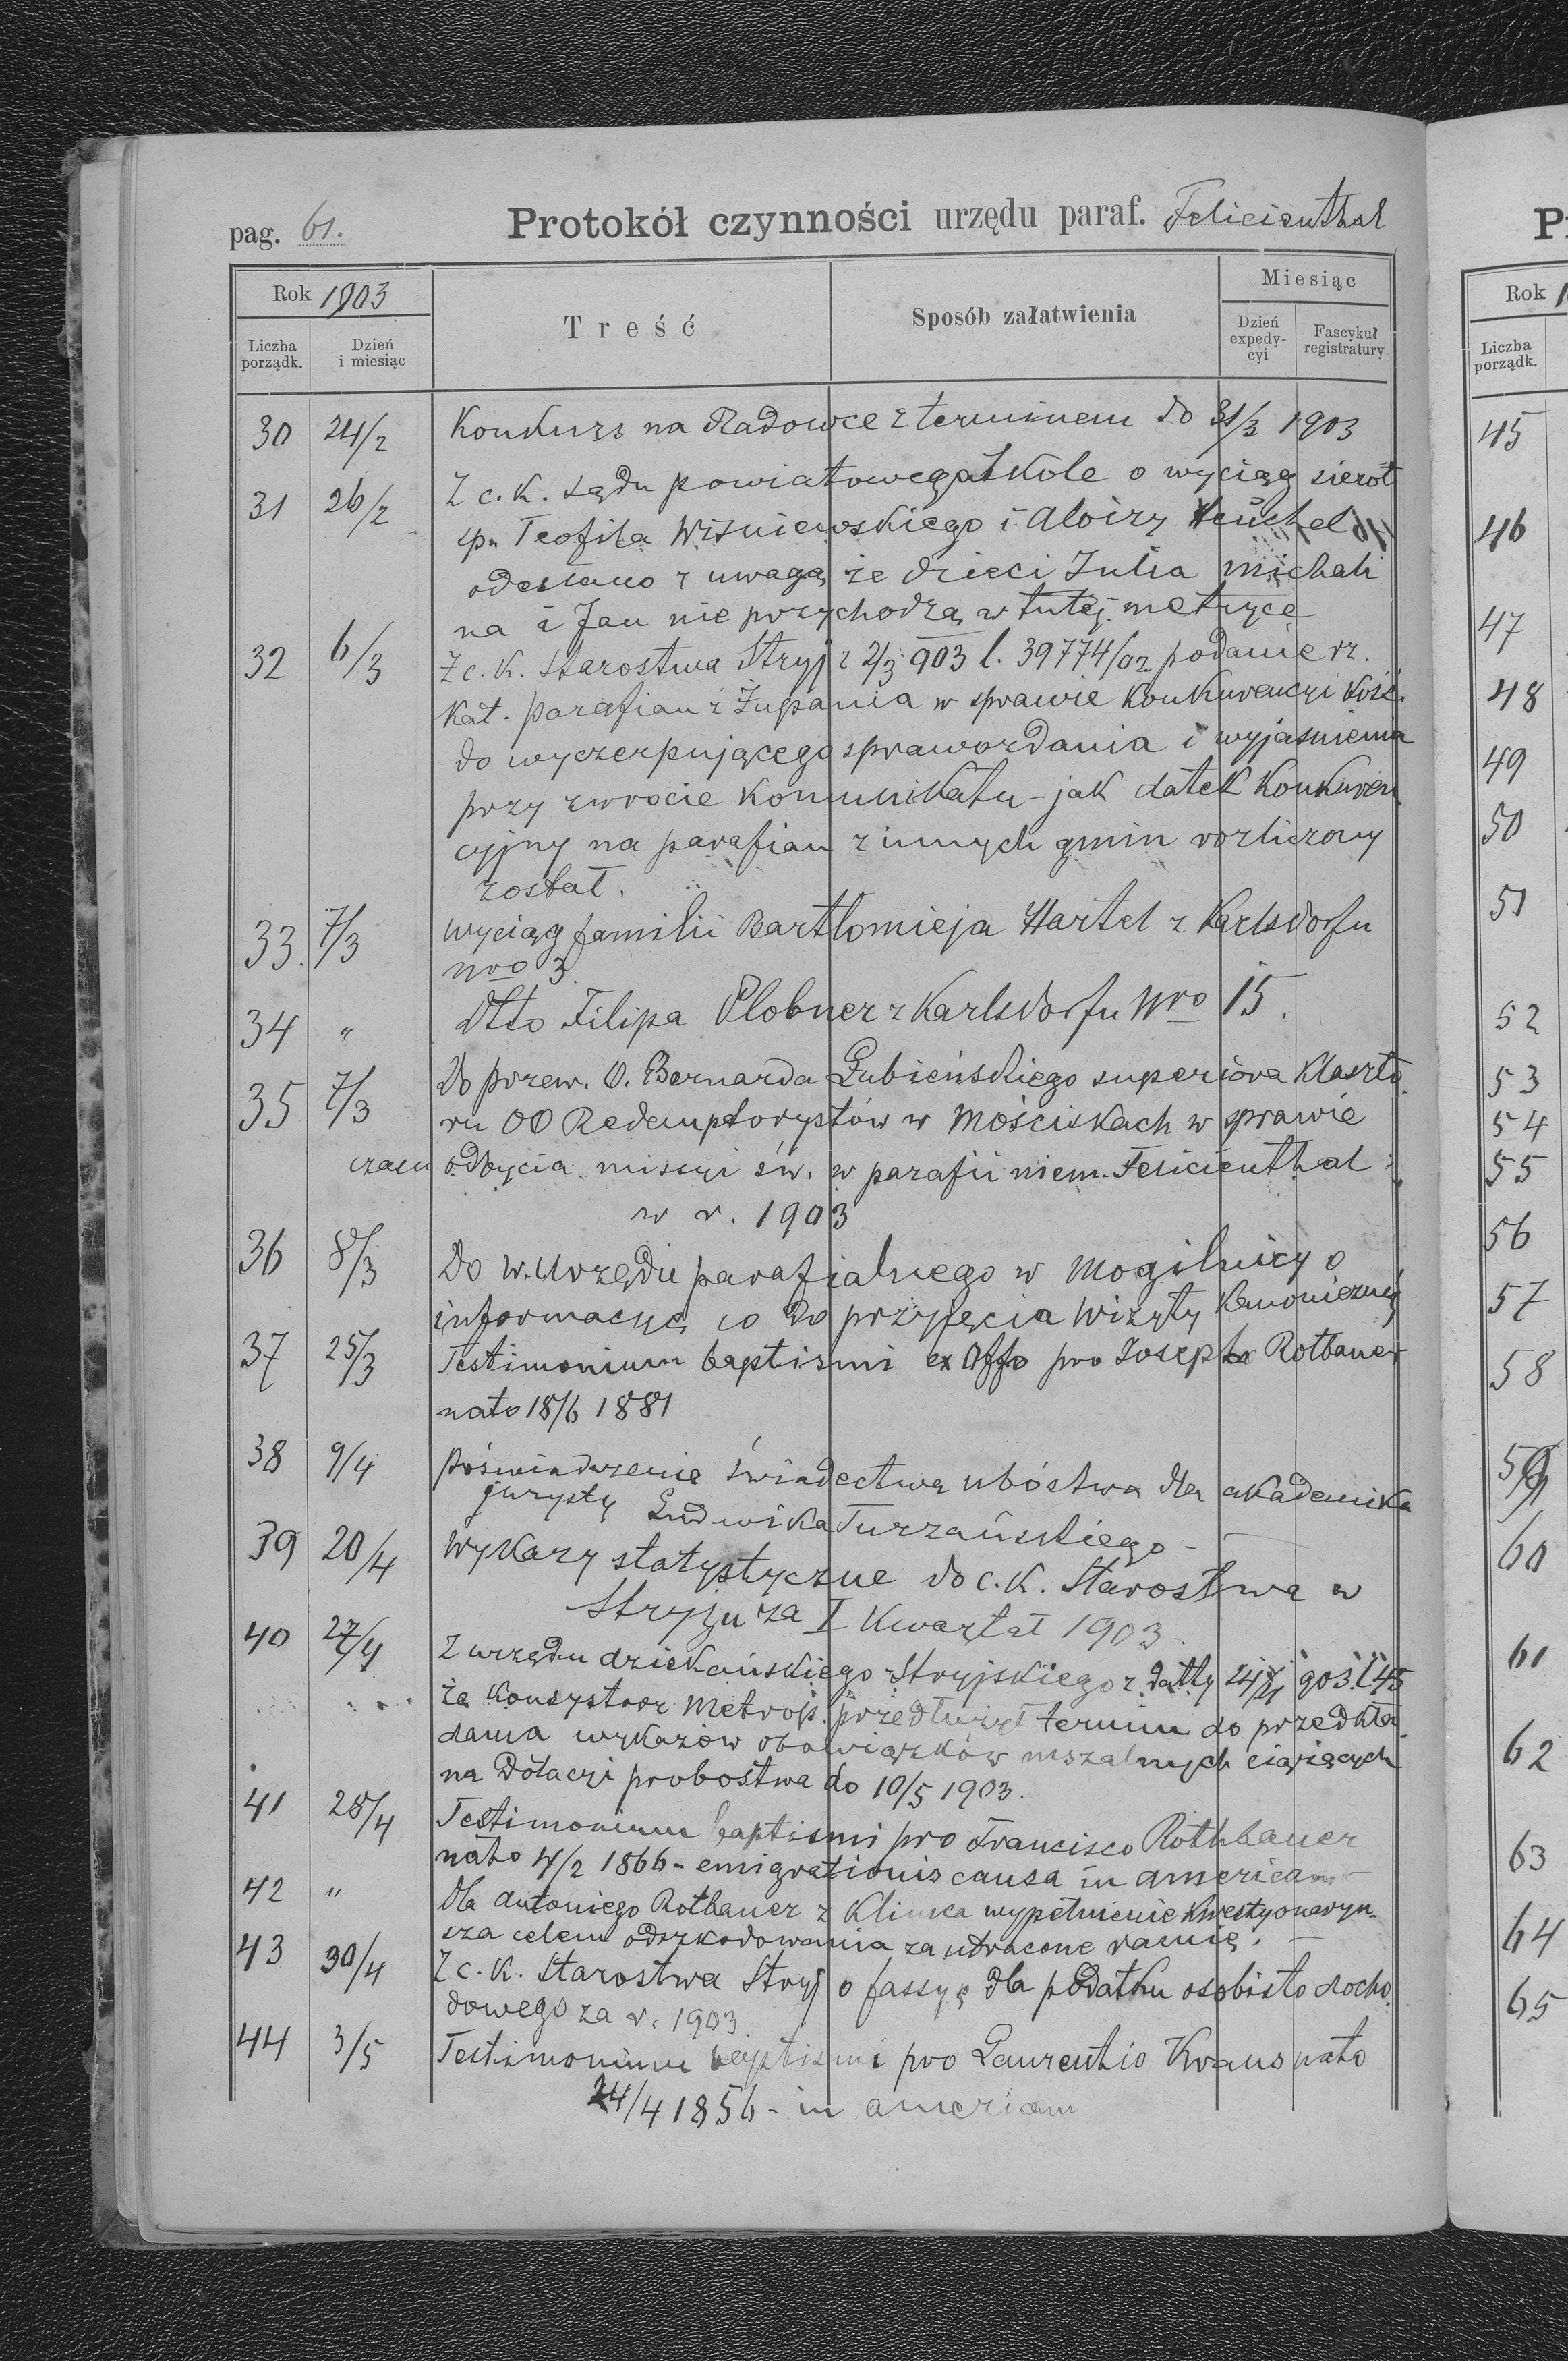 pag. 61. Protokół czynności urzędu paraf. Felicienthal
Rok 1903 Treść Sposób załatwienia Miesiąc
Liczba porządk. Dzień i miesiąc Dzień expedycyi Fascykuł registratury
30 24/2 Konkurs na Radowce z terminem do 31/3 1903
31 26/2 Z c. k. sądu powiatowego Skole o wyciąg sierót
sp. Teofila Wiśniewskiego i Aloizy
odesłano z uwagą że dzieci Julia Michali
na i Jan nie przychodzą w tutej. metryce
32 6/3 Z c. k. Starostwa Stryj z 2/3 903 l. 39774/02 podanie rz.
kat. parafian z Żupania w sprawie konkurencyi kośc.
do wyczerpującego sprawozdania i wyjaśnienia
przy zwrocie komunikatu - jak datek konkuren
cyjny na parafian z innych gmin rozliczony
został.
33. 7/3 Wyciąg familii Bartłomieja Hartel z Karlsdorfu
nro 3.
34 " dtto Filipa Plobner z Karlsdorfu Nro 15.
35 7/3 Do przew. O. Bernarda Łubieńskiego superiora klaszto
ru OO Redemptorystów w Mościskach w sprawie
czasu odbycia missyi św. w parafii niem. Felicienthal
w r. 1903
36 8/3 Do W. Urzędu parafialnego w Mogilnicy o
informacyę co do przyjęcia wizyty kanonicznej
37 25/3 Testimonium baptismi ex Offo pro Josepho Rotbauer
nato 18/6 1881
38 9/4 Poświadczenie świadectwa ubóstwa dla akademika
jurysty Ludwika Turzańskiego -
39 20/4 Wykazy statystyczne do c. k. Starostwa w
Stryju za I kwartał 1903
40 27/4 Z urzędu dziekańskiego Stryjskiego z datty 24/4 903 l 45
że Konsystorz Metrop. przedłużył termin do przedkła
dania wykazów obowiązków mszalnych ciążących
na dotacyi probostwa do 10/5 1903.
41 28/4 Testimonium baptismi pro Francisco Rothbauer
nato 4/2 1866 - emigrationis causa in americam
42 " Dla Antoniego Rotbauer z Klimca wypełnienie kwestyonaryu-
sza celem odszkodowania za utracone ramię. -
43 30/4 Z c. k. Starostwa Stryj o fassyę dla podatku osobisto docho
dowego za r. 1903.
44 3/5 Testimonium baptismi pro Laurentio Kraus nato
24/4 1856 - in americam
P
Rok 1
Liczba porządk.
45
46
47
48
49
50
51
52
53
54
55
56
57
58
59
60
61
62
63
64
65